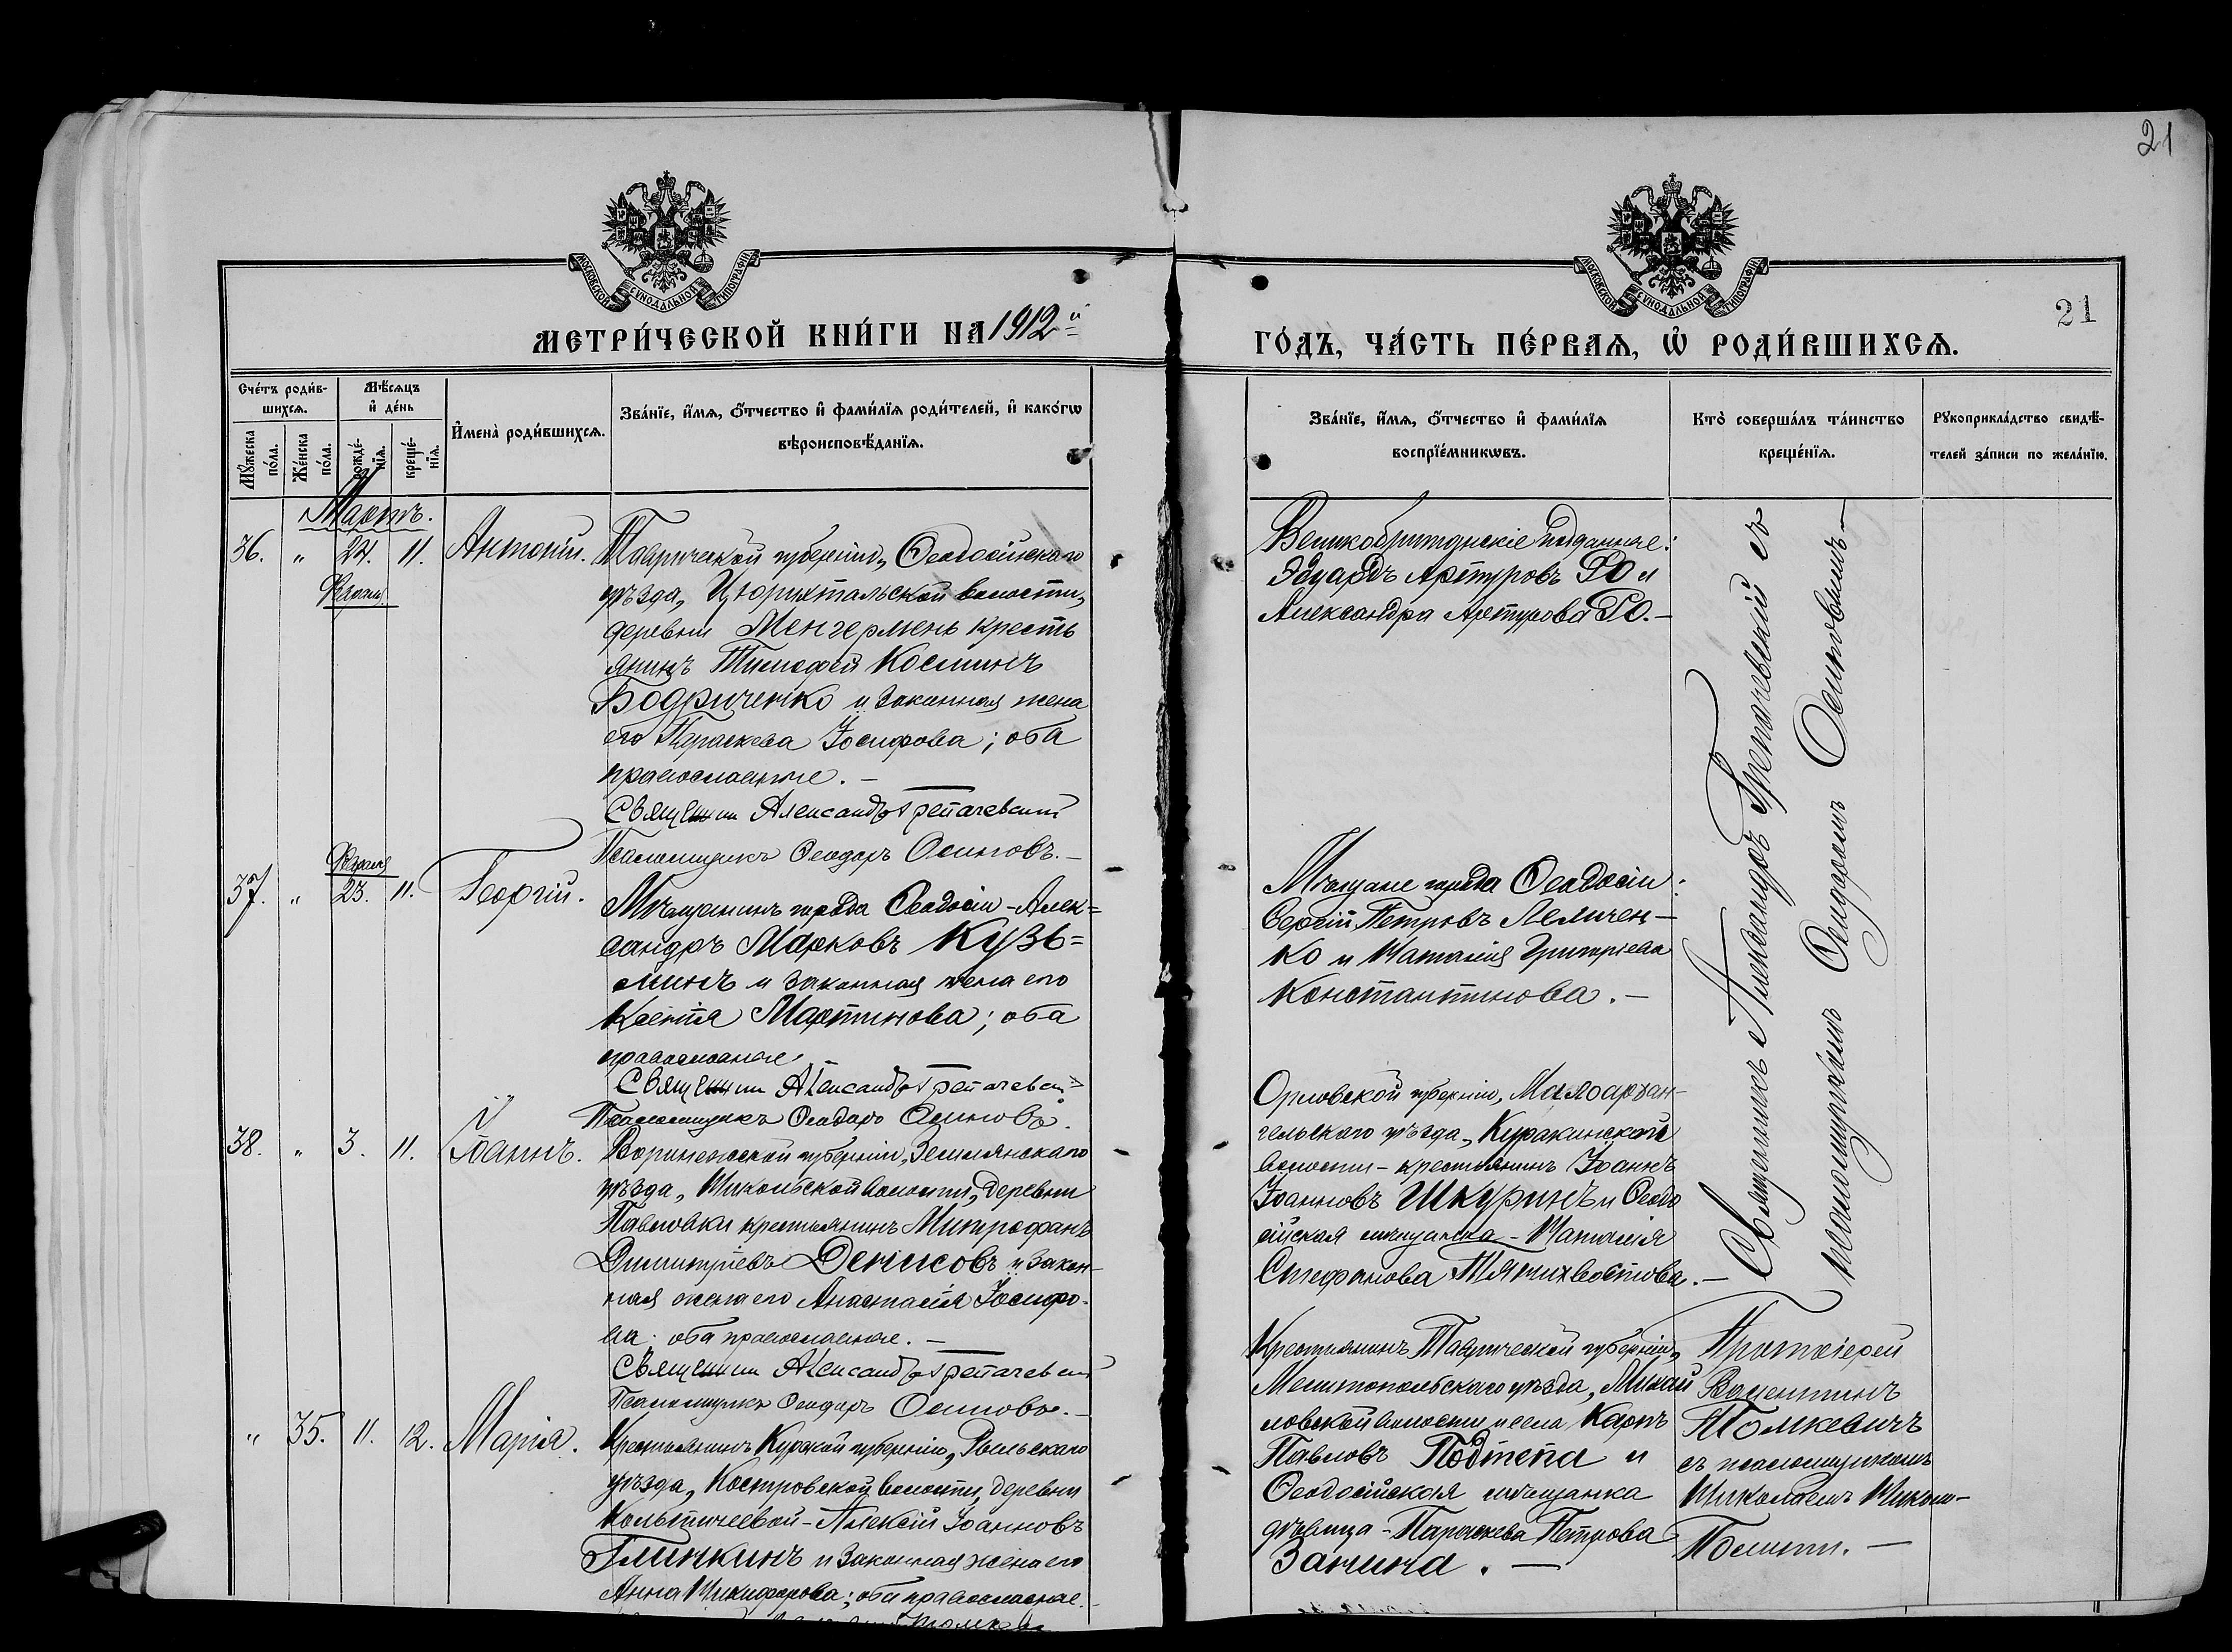 21
МОСКОВСКОЙ СУНОДАЛЬНОЙ ТИПОГРАФІИ
МОСКОВСКОЙ СУНОДАЛЬНОЙ ТИПОГРАФІИ
21
МЕТРИ́ЧЕСКОЙ КНИ́ГИ НА 1912й
ГО́ДЪ, ЧА́СТЬ ПЕ́РВАѦ, Ѽ РОДИ́ВШИХСѦ.
Сче́тъ роди́в-
шихсѧ.
Мѣ́сѧцъ
и҆ де́нь
Мꙋ́жеска по́ла.
Же́нска по́ла.
рожде́-нїѧ.
креще́-нїѧ.
И҆мена̀ роди́вшихсѧ.
Зва́нїе, и҆́мѧ, ѻ҆́тчество и҆ фами́лїѧ роди́телей, и҆ како́гѡ
вѣроисповѣ́данїѧ.
Зва́нїе, и҆́мѧ, ѻ҆́тчество и҆ фами́лїѧ
воспрїе́мникѡвъ.
Кто̀ соверша́лъ та́инство
креще́нїѧ.
Рꙋкоприкла́дство свидѣ́-
телей за́писи по жела́нїю.
Мартъ.
36. " 24. 11. Антоній.
Феврал.
Таврической губерніи, Ѳеодосійскаго
уѣзда, Цюрихтальской волости,
деревни Менгермень кресть
янинъ Тимофей Косминъ
Бодриченко и законная жена
его Параскева Іосифова; оба
православные. –
Священник Александръ Гретачевскій
Псаломщикъ Ѳеодоръ Осиповъ. –
Великобританскіе подданные:
Эдуардъ Артуровъ Ю и
Александра Артурова Ю. –
Февраля
37. " 23. 11. Георгій.
Мѣщанинъ города Ѳеодосіи – Алек=
сандръ Марковъ Кузь=
минъ и законная жена его
Ксенія Мартинова; оба
православные.
Священник Александръ Гретачевскій
Псаломщикъ Ѳеодоръ Осиповъ.
Мѣщане города Ѳеодосіи:
Сергій Петровъ Леличен–
ко и Наталія Григорьева
Константинова. –
38. " 3. 11. Іоаннъ.
Воронежской губерніи, Землянскаго
уѣзда, Никольской волости, деревни
Павловки крестьянинъ Митрофанъ
Димитріевъ Денисовъ и закон–
ная жена его Анастасія Іосифо–
ва; оба православные. –
Священник Александръ Гретачевскій
Псаломщикъ Ѳеодоръ Осиповъ. –
Орловской губерніи, Малоархан–
гельскаго уѣзда, Куракинской
волости – крестьянинъ Іоаннъ
Іоанновъ Шкуринъ и Ѳеодо
сійская мѣщанка – Наталія
Стефанова Мягихвостова. –
Священникъ Александръ Гретачевскій съ
псаломщикомъ Ѳеодоромъ Осиповымъ –
" 35. 11. 12. Марія.
Крестьянинъ Курской губерніи, Рыльскаго
уѣзда, Костровской волости, деревни
Алексій Іоанновъ
Глинкинъ и законная жена его
Анна Никифорова; оба православные.
Крестьянинъ Таврической губерніи,
Мелитопольскаго уѣзда, Михай
ловской волости и села Карпъ
Павловъ Подтепа и
Ѳеодосійская мѣщанка
дѣвица – Параскева Петрова
Занина. –
Протоіерей
Валентинъ
съ псаломщикомъ
Николаемъ